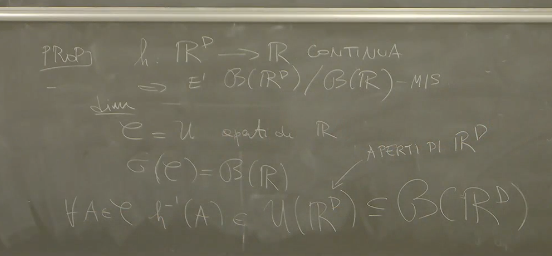 PROP] h: ℝᴰ → ℝ CONTINUA
⇒ E' B(ℝᴰ)/B(ℝ)-MIS
dim
C = U aperti di ℝ
σ(C) = B(ℝ)
APERTI DI ℝᴰ
∀A∈C h⁻¹(A) ∈ U(ℝᴰ) ⊆ B(ℝᴰ)